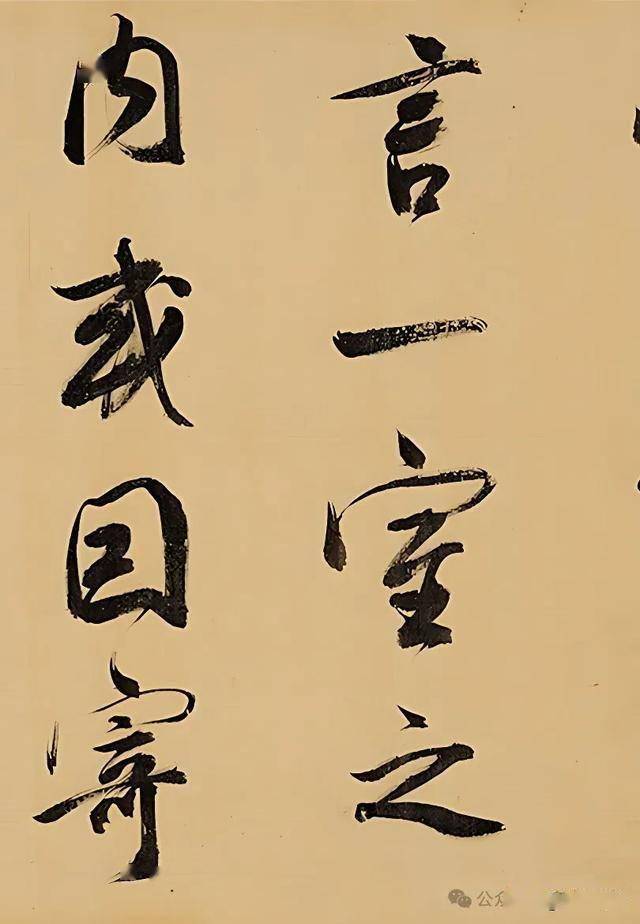 言一室之
内或因寄
公众